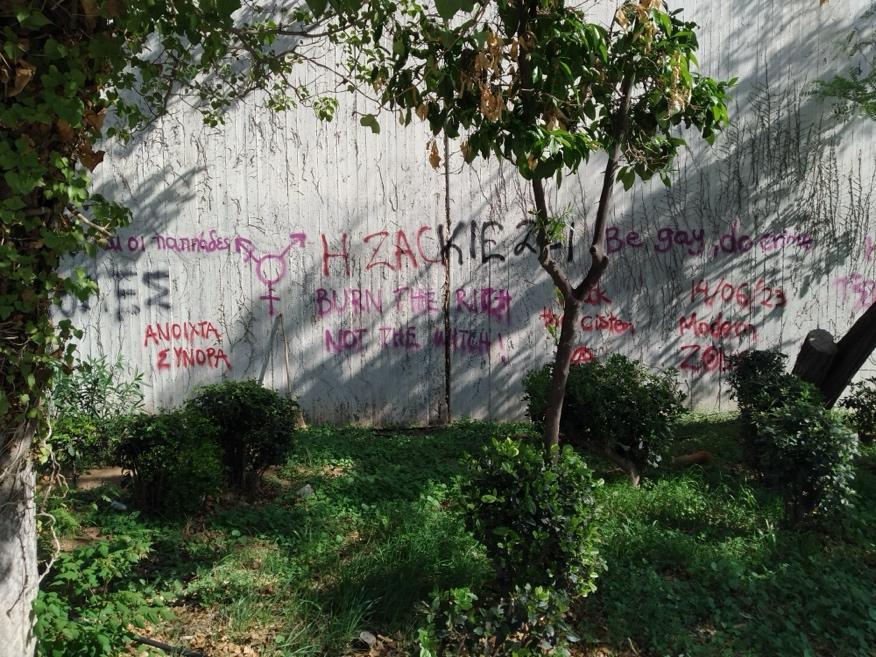 οι παππάδες
Η ZACKIE ΖΕΙ
Be gay, do crime
BURN THE RICH
NOT THE WITCH!
ΑΝΟΙΧΤΑ
ΣΥΝΟΡΑ
the cistem
14/06/23
Modern